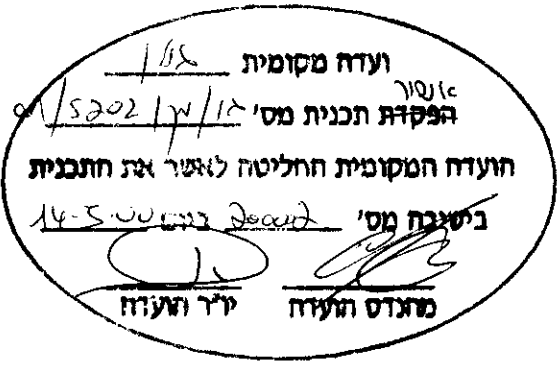 ועדה מקומית גזר
אישור
הפקדת תכנית מס' גז/מק/5202/
הועדה המקומית החליטה לאשר את התכנית
בישיבה מס' ביום 14-5-00
מהנדס הועדה יו"ר הועדה